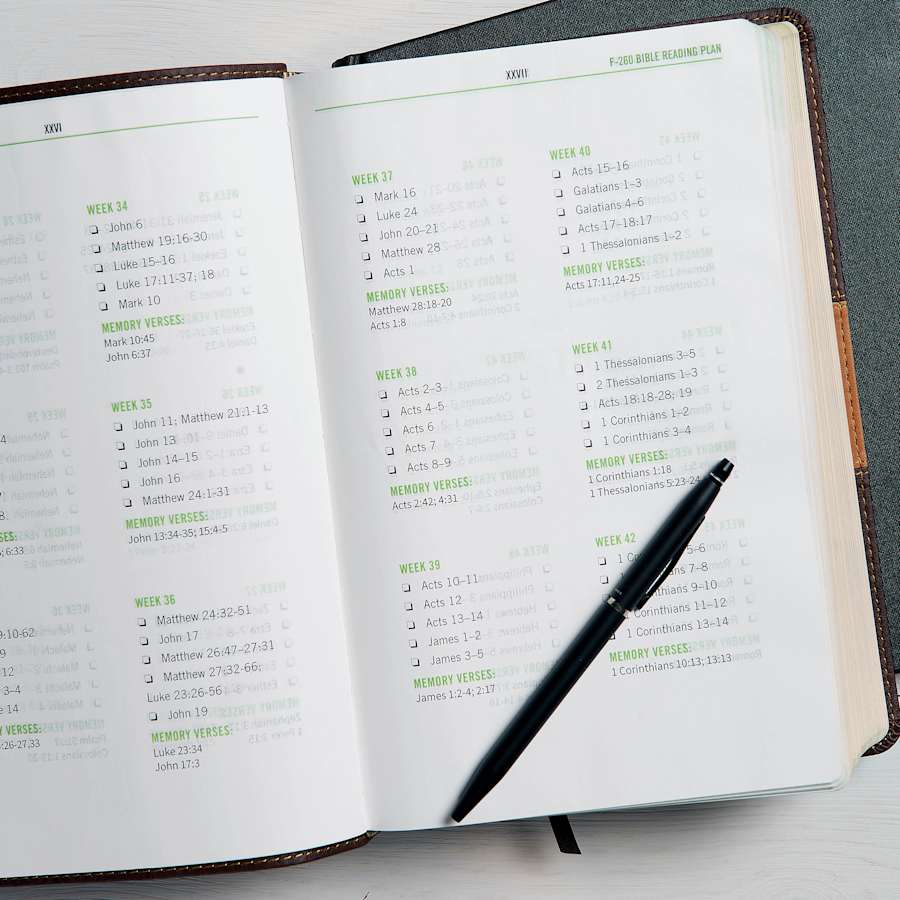 XXVI
WEEK 34
John 6
Matthew 19:16-30
Luke 15–16
Luke 17:11-37; 18
Mark 10
MEMORY VERSES:
Mark 10:45
John 6:37
WEEK 35
John 11; Matthew 21:1-13
John 13
John 14–15
John 16
Matthew 24:1-31
MEMORY VERSES:
John 13:34-35; 15:4-5
WEEK 36
Matthew 24:32-51
John 17
Matthew 26:47–27:31
Matthew 27:32-66;
Luke 23:26-56
John 19
MEMORY VERSES:
Luke 23:34
John 17:3
XXVII
F-260 BIBLE READING PLAN
WEEK 37
Mark 16
Luke 24
John 20–21
Matthew 28
Acts 1
MEMORY VERSES:
Matthew 28:18-20
Acts 1:8
WEEK 38
Acts 2–3
Acts 4–5
Acts 6
Acts 7
Acts 8–9
MEMORY VERSES:
Acts 2:42; 4:31
WEEK 39
Acts 10–11
Acts 12
Acts 13–14
James 1–2
James 3–5
MEMORY VERSES:
James 1:2-4; 2:17
WEEK 40
Acts 15–16
Galatians 1–3
Galatians 4–6
Acts 17–18:17
1 Thessalonians 1–2
MEMORY VERSES:
Acts 17:11,24-25
WEEK 41
1 Thessalonians 3–5
2 Thessalonians 1–3
Acts 18:18-28; 19
1 Corinthians 1–2
1 Corinthians 3–4
MEMORY VERSES:
1 Corinthians 1:18
1 Thessalonians 5:23-24
WEEK 42
5–6
7–8
1 Corinthians 9–10
1 Corinthians 11–12
1 Corinthians 13–14
MEMORY VERSES:
1 Corinthians 10:13; 13:13